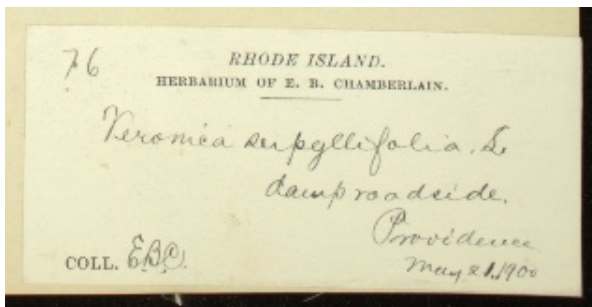 76
RHODE ISLAND.
HERBARIUM OF E. B. CHAMBERLAIN.
Veronica serpyllifolia. L
damp roadside.
Providence
May 21.1900
COLL. E.B.C.